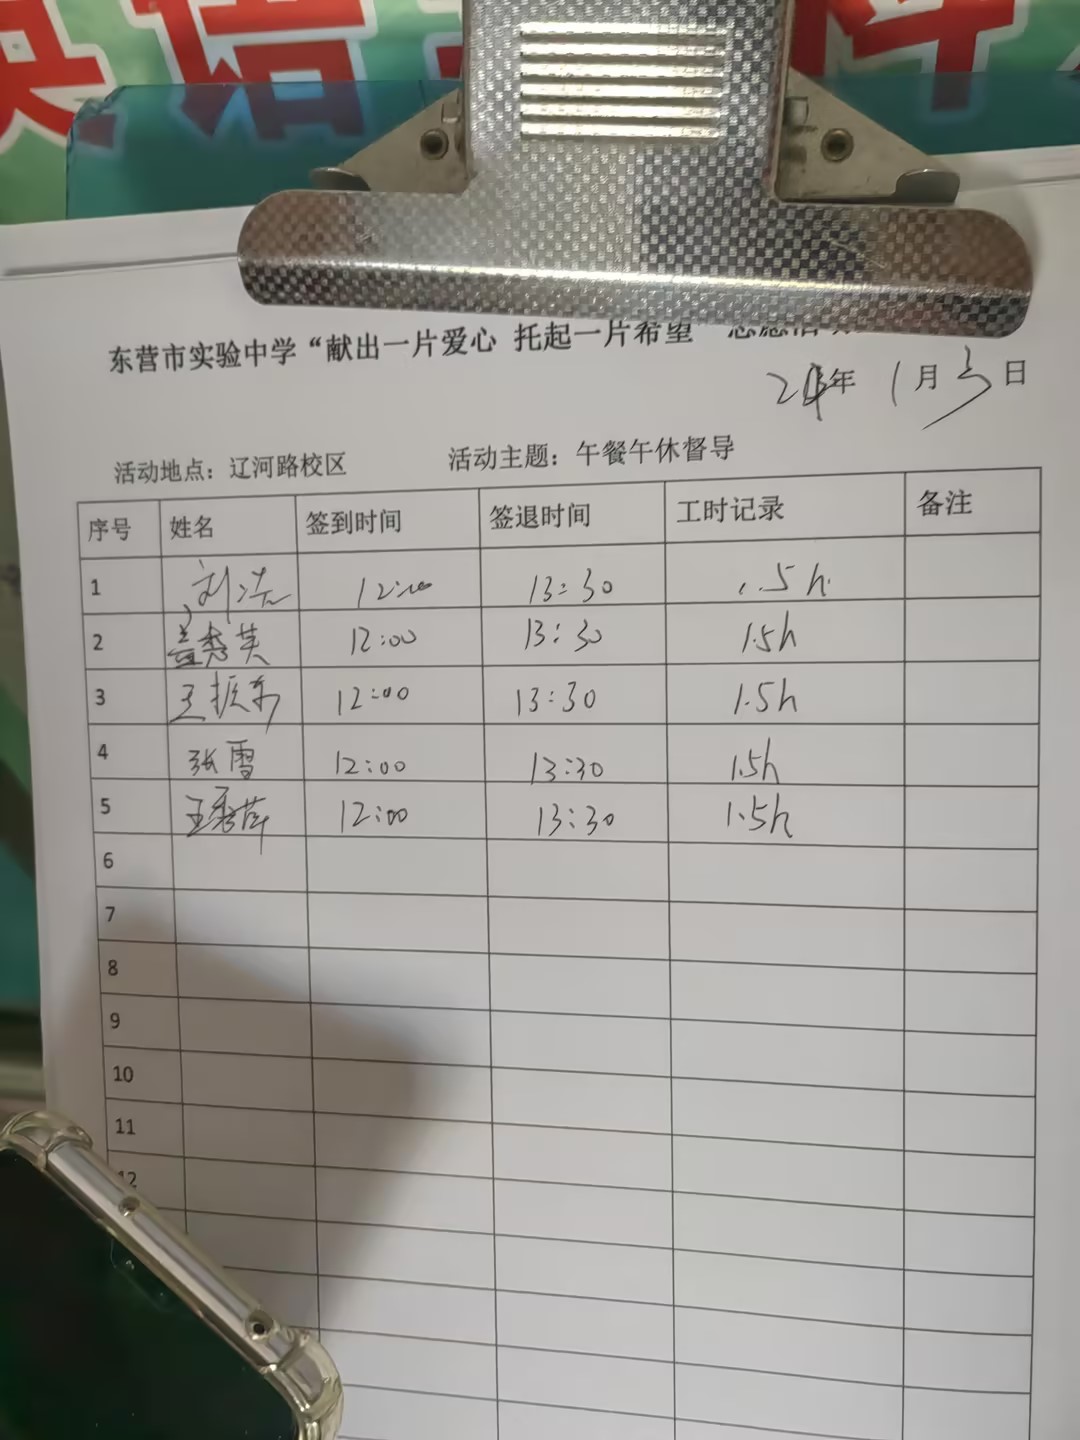 英语
东营市实验中学“献出一片爱心 托起一片希望”志愿活动
24年 1月3日
活动地点：辽河路校区 活动主题：午餐午休督导
序号 姓名 签到时间 签退时间 工时记录 备注
1 刘浩 12:00 13:30 1.5h
2 盖秀英 12:00 13:30 1.5h
3 王振东 12:00 13:30 1.5h
4 张雪 12:00 13:30 1.5h
5 王秀萍 12:00 13:30 1.5h
6
7
8
9
10
11
12